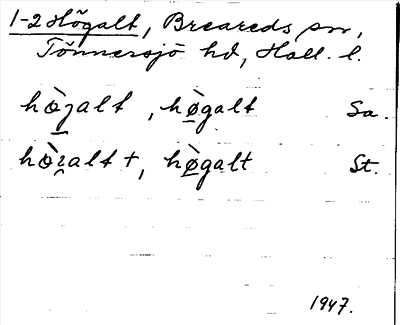 1-2 Högalt, Breareds sn,
Tönnersjö hd, Hall. l.
hògalt, hø̀galt Sa.
hògalt t, hø̀galt St.
1947.